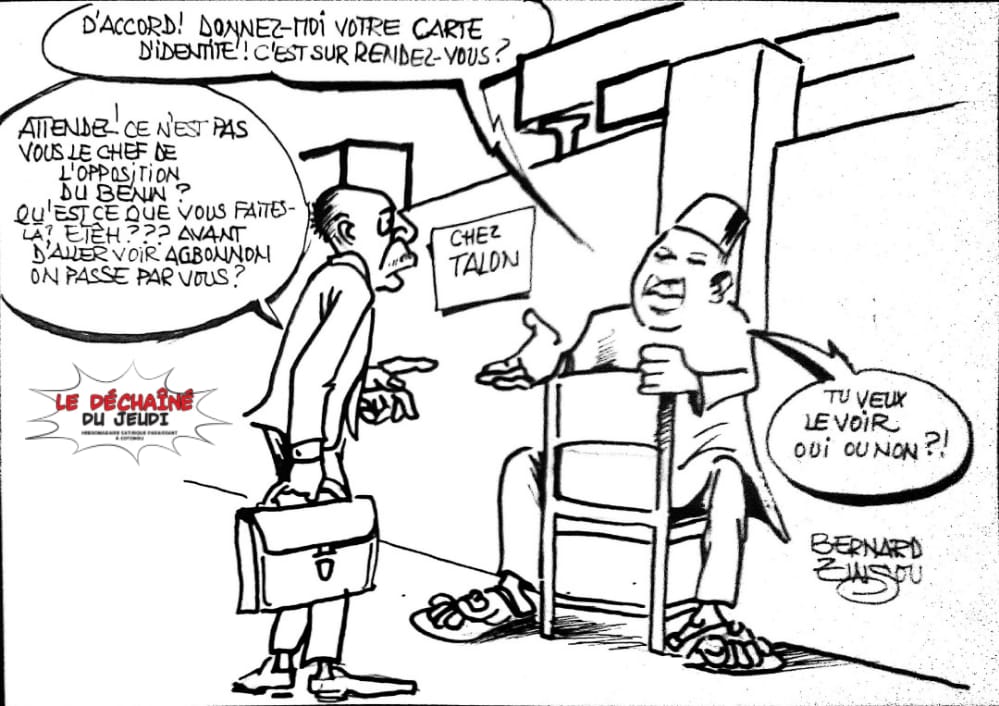 D'ACCORD! DONNEZ-MOI VOTRE CARTE
D'IDENTITE'! C'EST SUR RENDEZ-VOUS?
ATTENDEZ! CE N'EST PAS
VOUS LE CHEF DE
L'OPPOSITION
DU BENIN?
QU'EST CE QUE VOUS FAITES-
LÀ? ETEH??? AVANT
D'ALLER VOIR AGBONNON
ON PASSE PAR VOUS?
CHEZ
TALON
TU VEUX
LE VOIR
OUI OU NON?!
LE DÉCHAÎNÉ
DU JEUDI
HEBDOMADAIRE SATIRIQUE PARAISSANT
À COTONOU
BERNARD
ZINSOU